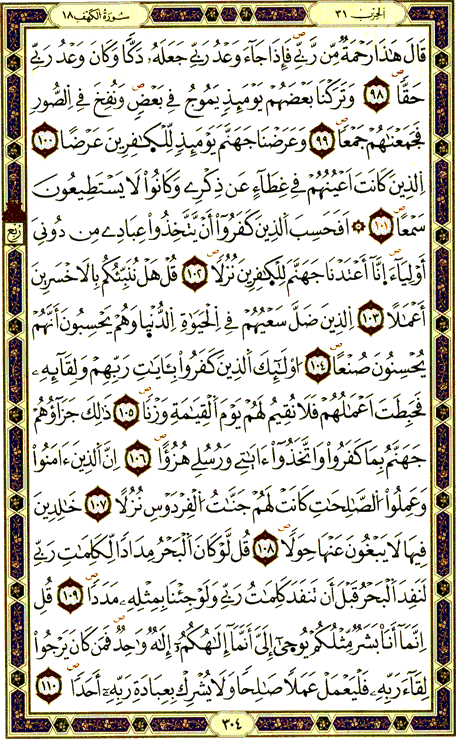 سُورَةُ الكَهْف ١٨
الحِزْب ٣١
قَالَ هَٰذَا رَحْمَةٌ مِّن رَّبِّي فَإِذَا جَآءَ وَعْدُ رَبِّي جَعَلَهُۥ دَكًّا وَكَانَ وَعْدُ رَبِّي
حَقًّا ٩٨ وَتَرَكْنَا بَعْضَهُمْ يَوْمَئِذٍ يَمُوجُ فِي بَعْضٍ وَنُفِخَ فِي الصُّورِ
فَجَمَعْنَٰهُمْ جَمْعًا ٩٩ وَعَرَضْنَا جَهَنَّمَ يَوْمَئِذٍ لِّلْكَٰفِرِينَ عَرْضًا ١٠٠
الَّذِينَ كَانَتَ اَعْيُنُهُمْ فِي غِطَآءٍ عَن ذِكْرِي وَكَانُوا لَا يَسْتَطِيعُونَ
سَمْعًا ١٠١ ۞ اَفَحَسِبَ الَّذِينَ كَفَرُوٓا أَنْ يَّتَّخِذُوا عِبَادِي مِن دُونِيَ
أَوْلِيَآءَ اِنَّآ أَعْتَدْنَا جَهَنَّمَ لِلْكَٰفِرِينَ نُزُلًا ١٠٢ قُلْ هَلْ نُنَبِّئُكُم بِالَاخْسَرِينَ
أَعْمَٰلًا ١٠٣ الَّذِينَ ضَلَّ سَعْيُهُمْ فِي الْحَيَوٰةِ الدُّنْيَا وَهُمْ يَحْسِبُونَ أَنَّهُمْ
يُحْسِنُونَ صُنْعًا ١٠٤ اُوْلَٰٓئِكَ الَّذِينَ كَفَرُوا بِـَٔايَٰتِ رَبِّهِمْ وَلِقَآئِهِۦ
فَحَبِطَتَ اَعْمَٰلُهُمْ فَلَا نُقِيمُ لَهُمْ يَوْمَ الْقِيَٰمَةِ وَزْنًا ١٠٥ ذَٰلِكَ جَزَآؤُهُمْ
جَهَنَّمُ بِمَا كَفَرُوا وَاتَّخَذُوٓا ءَايَٰتِي وَرُسُلِي هُزُؤًا ١٠٦ اِنَّ الَّذِينَ ءَامَنُوا
وَعَمِلُوا الصَّٰلِحَٰتِ كَانَتْ لَهُمْ جَنَّٰتُ الْفِرْدَوْسِ نُزُلًا ١٠٧ خَٰلِدِينَ
فِيهَا لَا يَبْغُونَ عَنْهَا حِوَلًا ١٠٨ قُل لَّوْ كَانَ الْبَحْرُ مِدَادًا لِّكَلِمَٰتِ رَبِّي
لَنَفِدَ الْبَحْرُ قَبْلَ أَن تَنفَدَ كَلِمَٰتُ رَبِّي وَلَوْ جِئْنَا بِمِثْلِهِۦ مَدَدًا ١٠٩ قُلِ
اِنَّمَآ أَنَا بَشَرٌ مِّثْلُكُمْ يُوحَىٰٓ إِلَيَّ أَنَّمَآ إِلَٰهُكُمُۥٓ إِلَٰهٌ وَٰحِدٌ فَمَن كَانَ يَرْجُوا
لِقَآءَ رَبِّهِۦ فَلْيَعْمَلْ عَمَلًا صَٰلِحًا وَلَا يُشْرِكْ بِعِبَادَةِ رَبِّهِۦٓ أَحَدًا ١١٠
ربع
٣٠٤